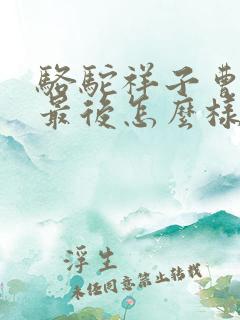 駱駝祥子曹
最後怎麼樣
浮生
未經同意禁止轉載